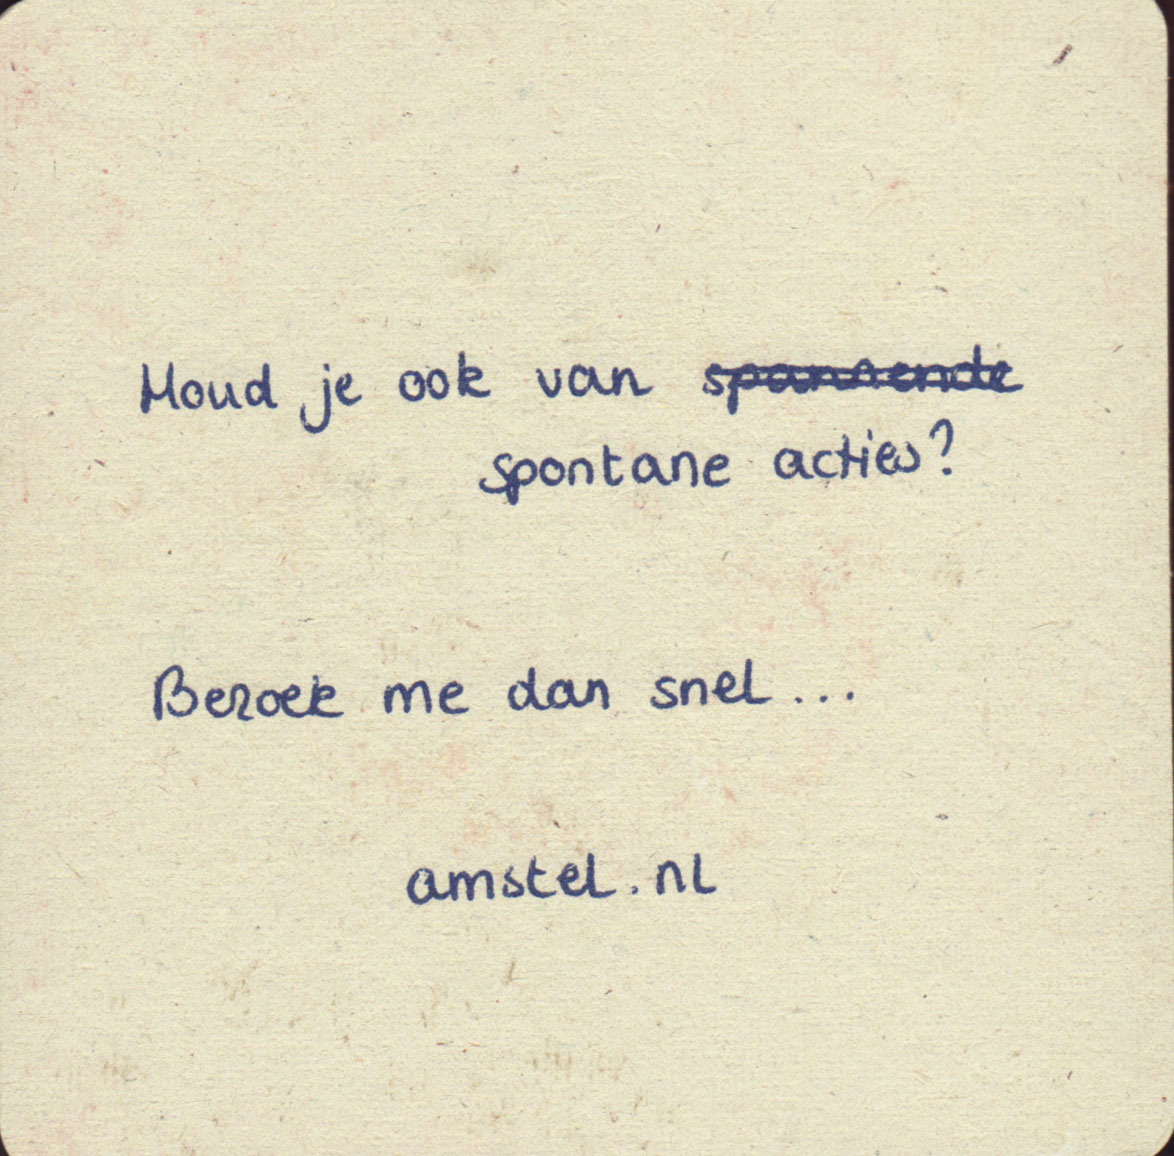 Houd je ook van spannende
spontane acties?
Bezoek me dan snel...
amstel.nl